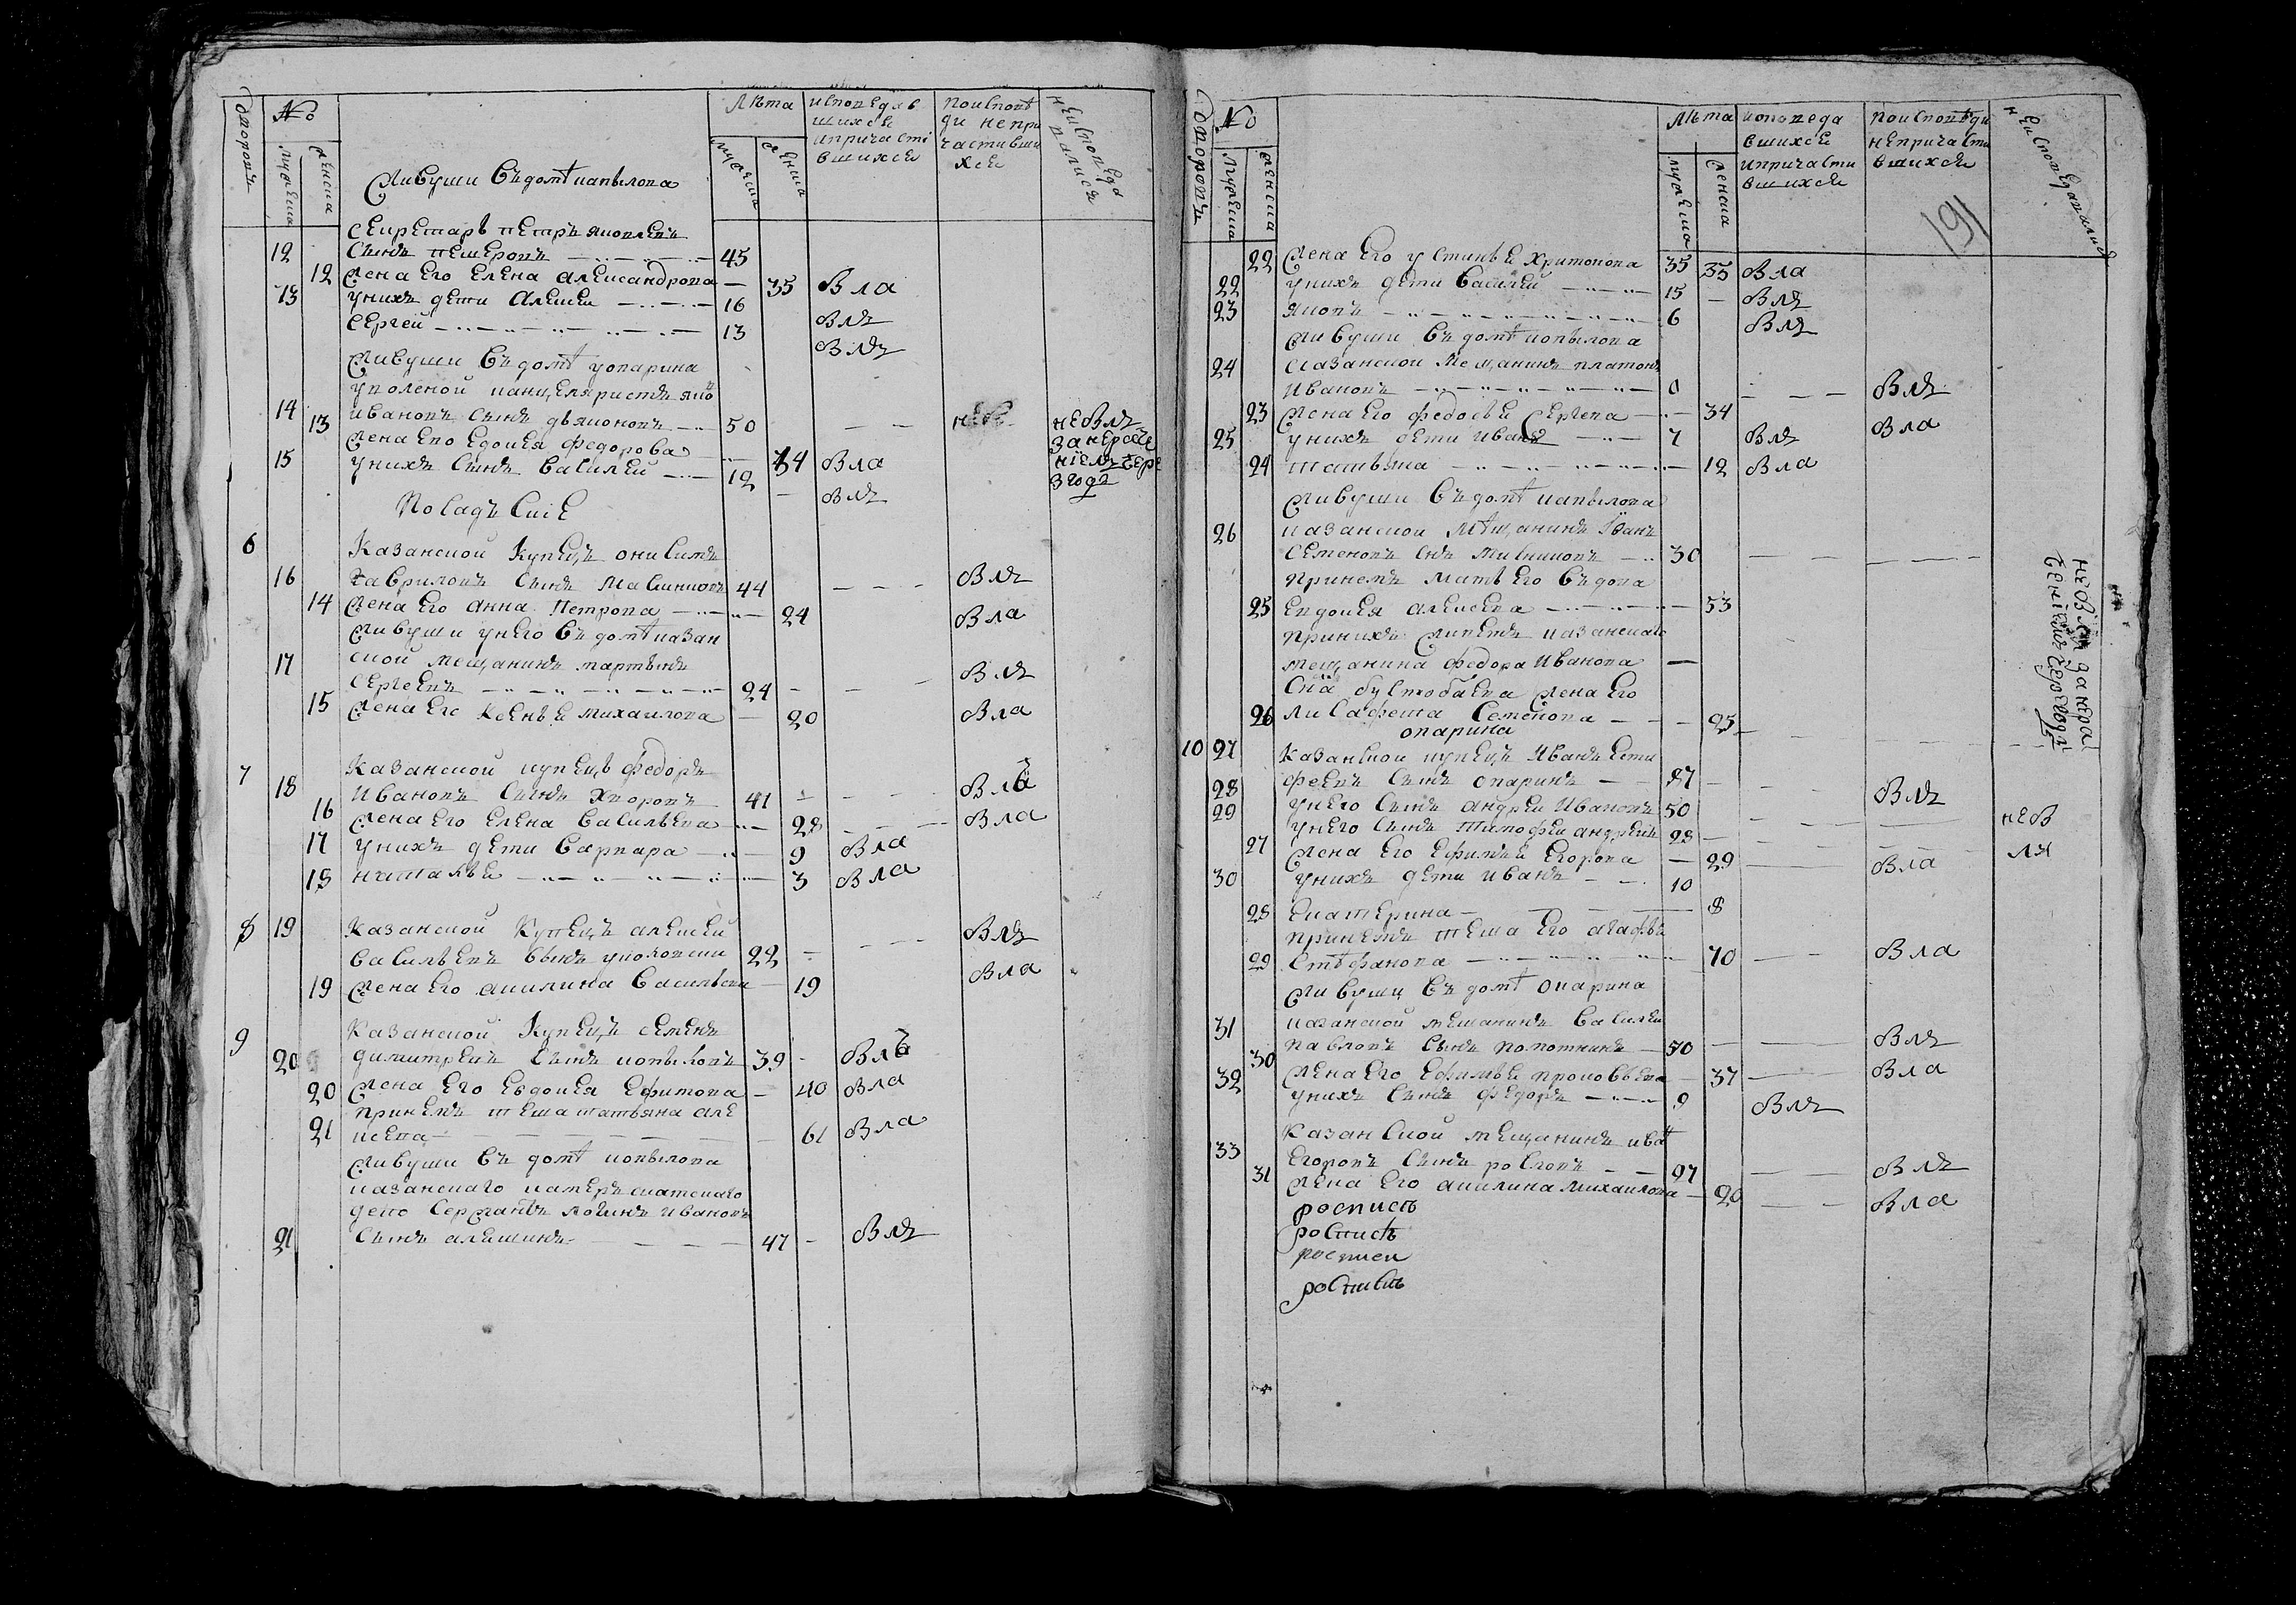 дворовъ № мужеска женска Лѣта мужеска женска исповедавшихся и причасти вшихся по исповѣ ди не при частивши хся не исповеда вались
Живущи въ домѣ капылова
секретарь петръ яковлевъ
12 сынъ пещеровъ 45
12 жена его елена александрова 35 была
13 у нихъ дети алексеи 16 былъ
сергей 13 былъ
живущи въ домѣ у опарина
14 ивановъ сынъ дьяконовъ 50 небылъ
13 жена ево едокея федорова 34 была
15 у нихъ сынъ василеи 12 былъ
Посадъ скіе
6 Казанской купецъ онисимъ
16 гавриловъ сынъ масинниковъ 44 былъ
14 жена его анна Петрова 24 была
живущи у него въ домѣ казан
17 ской мещанинъ мартынъ
сергеевъ 24 былъ
15 жена его ксенья михаилова 20 была
7 Казанской купецъ федоръ
18 ивановъ сынъ хворовъ 41 былъ
16 жена его елена васильева 28 была
17 у нихъ дети варвара 9 была
18 наталья 3 была
8 19 Казанской купецъ алексей
васильевъ сынъ уколовски 22 былъ
19 жена его акилина васильева 19 была
9 Казанской купецъ семенъ
20 димитреевъ сынъ копыловъ 39 былъ
20 жена его евдокея ефимова 40 была
при немъ теща татьяна але
21 ксева 61 была
живущи въ домѣ копылова
21 сынъ алешинъ 47 былъ
дворовъ № мужеска женска Лѣта мужеска женска исповеда вшихся и причасти вшихся по исповѣди не причасти вшихся не исповедались
191
22 жена его устинья харитонова 35 35 была
22 у нихъ дети василей 15 былъ
23 яковъ 6 былъ
живущи въ домѣ копылова
24 казанской мещанинъ платонъ
ивановъ 0 былъ
23 жена его федосья сергева 34 была
25 у нихъ дети иванъ 7 былъ
24 татьяна 12 была
живущи въ домѣ капылова
26 казанской мѣщанинъ іванъ
семеновъ снъ мыльниковъ 30
при немъ мать его вдова
25 евдокея алексева 53
при нихъ живетъ казанскаго
мещанина федора иванова
26 лисафета семенова 25
опарина
10 27 Казанской купецъ иванъ ести
фѣевъ сынъ опаринъ 87
28 у него сынъ андреи ивановъ 50 былъ
29 у него сынъ тимофеи андреевъ 28 небылъ
27 жена его ефимья егорова 29 была
30 у нихъ дети иванъ 10
28 екатерина 8
при немъ теща его агафья
29 стѣфанова 70 была
живущи въ домѣ опарина
31 казанской мещанинъ василеи
павловъ сынъ полотнинъ 50 былъ
30 жена его ефимья прокофьева 37 была
32 у нихъ сынъ федоръ 9 былъ
33 Казанской мещанинъ иванъ
егоровъ сынъ рословъ 27 былъ
31 жена его акилина михаилова 20 была
росписъ
росписъ
росписи
росписъ